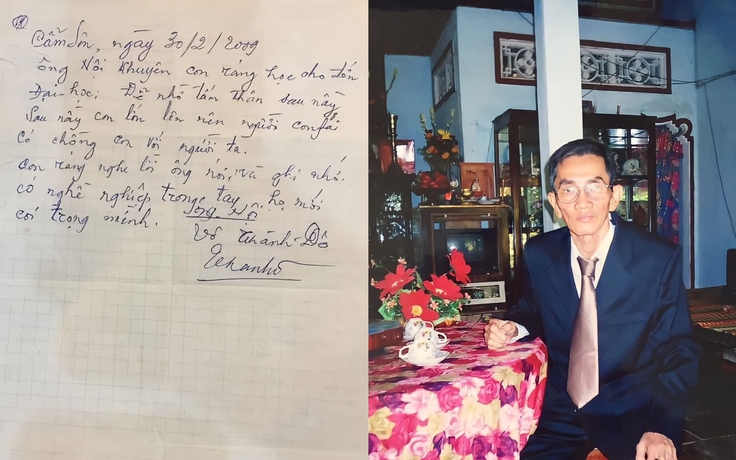 Cẩm Sơn, ngày 30/2/2009
ông Nội khuyên con ráng học cho đến
Đại học; Để nhờ tấm thân sau nầy
Sau nầy con lớn lên nên người con gái
có chồng con với người ta.
con ráng nghe lời ông nói, và ghi nhớ.
có nghề nghiệp trong tay, họ mới
coi trọng mình.
ông Nội
Võ Khánh Đô